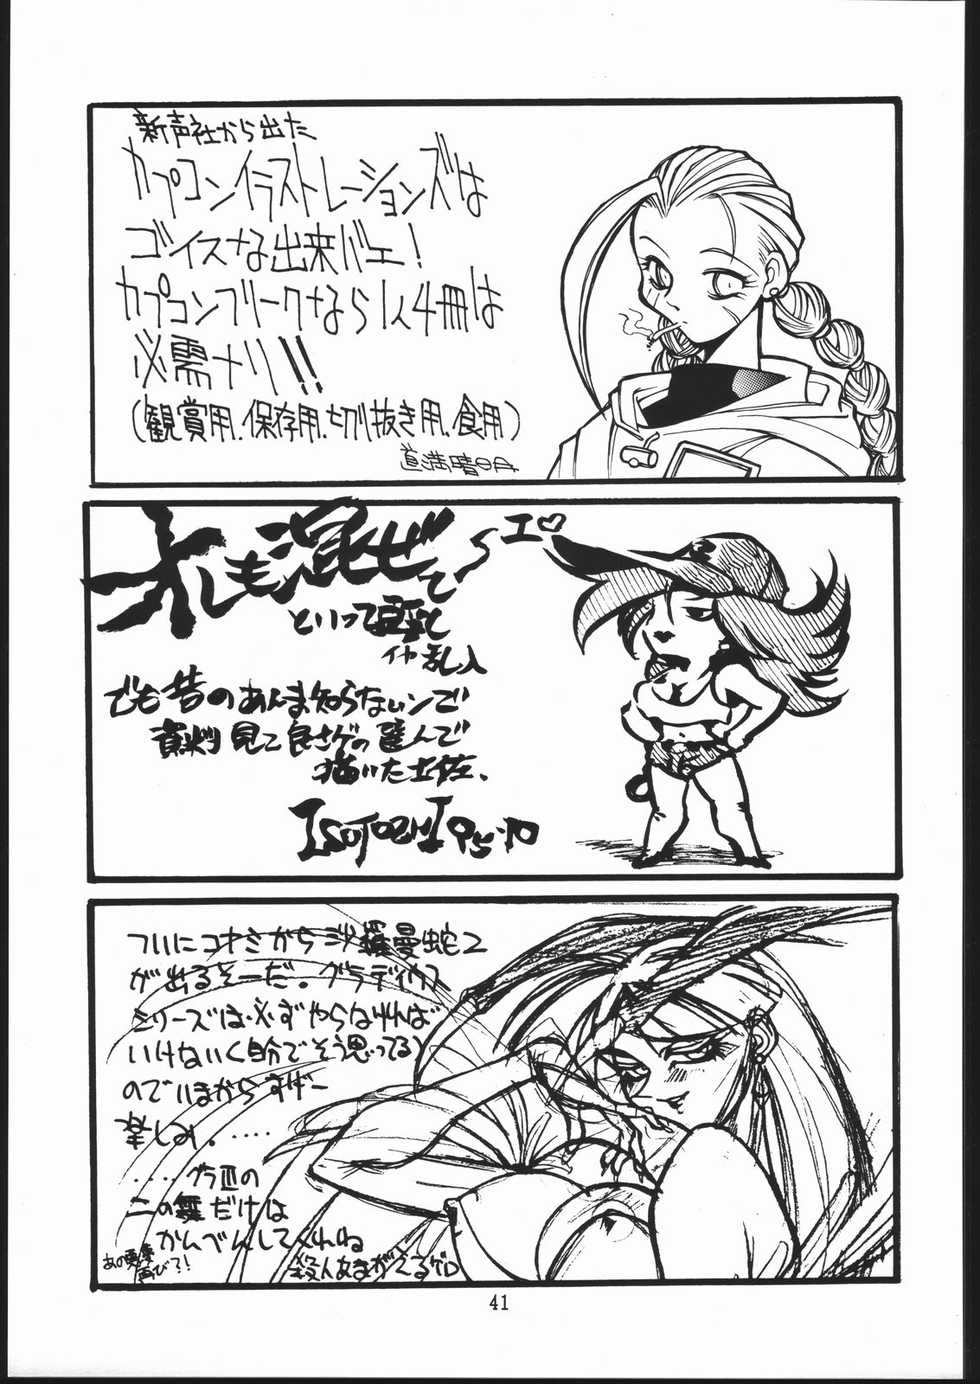 新声社から出た
カプコンイラストレーションズは
ゴイスな出来バエ!
カプコンフリークなら1人4冊は
必需ナリ!!
(観賞用、保存用、切り抜き用、食用)
道満晴明
オレも混ぜて〜エ♡
といって
イヤ乱入
でも昔のあんま知らないンで
資料見て良さゲの選んで
描いた土佐、
ついにコナミから沙羅曼蛇2
が出るそーだ。グラディウス
シリーズは必ずやらなければ
いけないく自分でそう思ってる)
のでいまからすげー
楽しみ。‥‥
‥‥今回の
二の舞だけは
かんべんしてくれね
あの
再び?!
殺人あまがえるゲロ
41